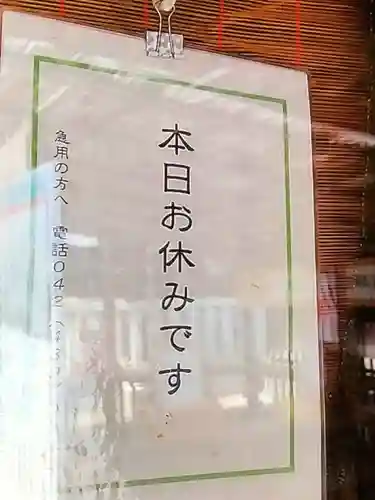 本日お休みです
急用の方へ 電話042